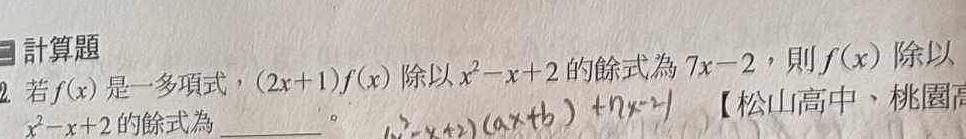 二 計算題
2. 若f(x)是一多項式,(2x+1)f(x)除以x²-x+2的餘式為7x-2,則f(x)除以
x²-x+2的餘式為______。 (x²-x+2)(ax+b)+7x-2 【松山高中、桃園高